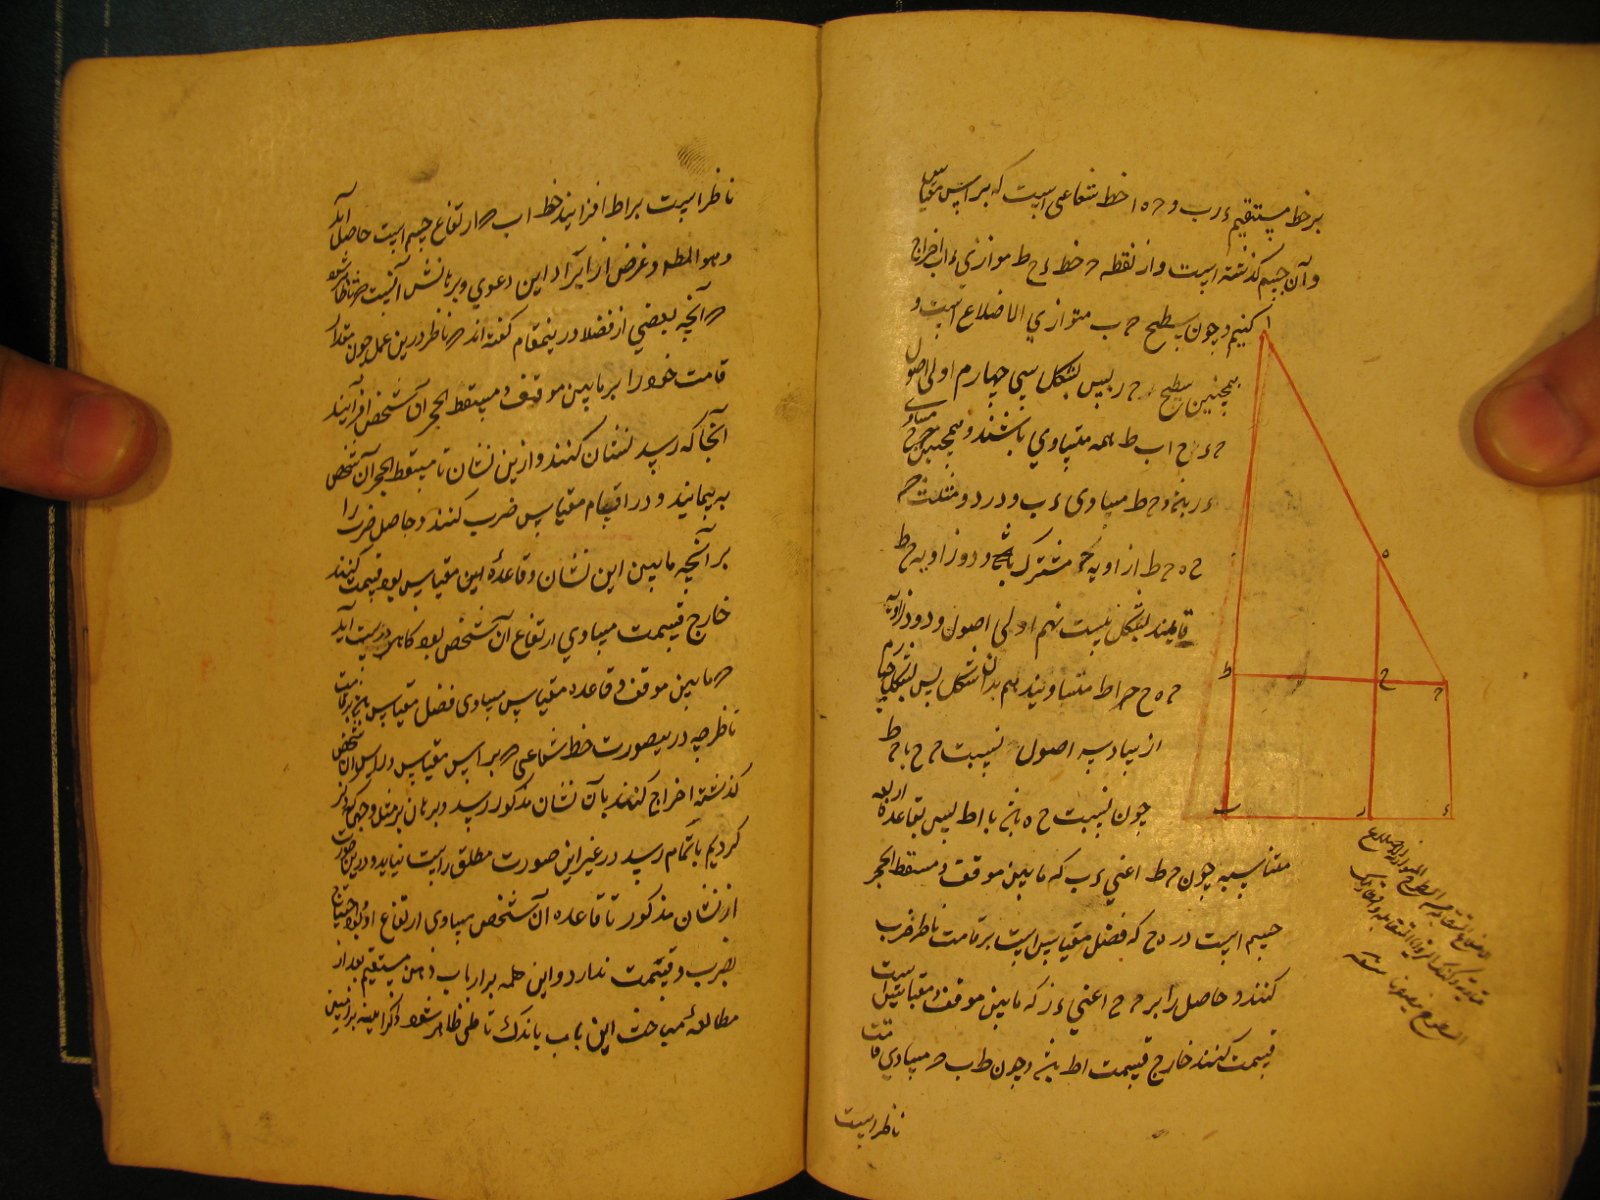 بر خط مستقیم ءرب و حه‍ا خط شعاعی است که بر راس مقیاس
و آن جسم گذشته است و از نقطه ح خط ءح ط موازی ءب اخراج
کنیم و چون سطح ح ب متوازی الاضلاع است و
همچنین سطح ح ر پس بشکل سی چهارم اولی اصول
ح ء رح اب ط همه متساوی باشند و همچنین ح ح مساوی
ءر باشد و ح ط مساوی ءب و در دو مثلث
ح ه ح ط ا زاویه ح مشترک باشد و دو زاویه ح ط
قایمند بشکل بیست نهم اولی اصول و دو زاویه
ح ه ح ح اط متساویند هم بدان شکل پس بشکل چهارم
از سادسه اصول نسبت ح ح با ح ط
چون نسبت ح ه باشد با اط پس بقاعده اربعه
متناسبه چون ح ط اعنی ءب که مابین موقف و مسقط الحجر
جسم است در ه ح که فضل مقیاس است بر قامت ناظر ضرب
کنند و حاصل را بر ح ح اعنی ءر که مابین موقف و مقیاس است
قسمت کنند خارج قسمت اط باشد و چون ط ب که مساوی قامت
ناظر است
ا
ه
ط
ح
ح
ب
ر
ء
ناظر است بر اط افزایند خط اب که ارتفاع جسم است حاصل آید
و هو المط و غرض از ایراد این دعوی و برهانش آنست که تا ظاهر شود
که آنچه بعضی از فضلا درینمقام گفته اند که ناظر درین عمل چون مقدار
قامت خود را بر مابین موقف و مسقط الحجر آن شخص افزایند
آنجا که رسد نشان کنند و ازین نشان تا مسقط الحجر آن شخص
به پیمایند و در اقسام مقیاس ضرب کنند و حاصل ضرب را
بر آنچه مابین این نشان و قاعدهٔ این مقیاس بود قسمت کنند
خارج قسمت مساوی ارتفاع آن شخص بود کاهی درست آید
که مابین موقف و قاعده مقیاس مساوی فضل مقیاس باشد بر قامت
ناظر چه درینصورت خط شعاعی که بر راس مقیاس و راس آن شخص
گذشته اخراج کنند بآن نشان مذکور رسد و برهان بر مثل وجهی که ذکر
کردیم باتمام رسد در غیر این صورت مطلق راست نیاید و درین صورت
از نشان مذکور تا قاعده آن شخص مساوی ارتفاع او بود و احتیاج
بضرب و قسمت ندارد و این همه بر ارباب ذهن مستقیم بعد از
مطالعهٔ مباحث این باب باندک تاملی ظاهر شود